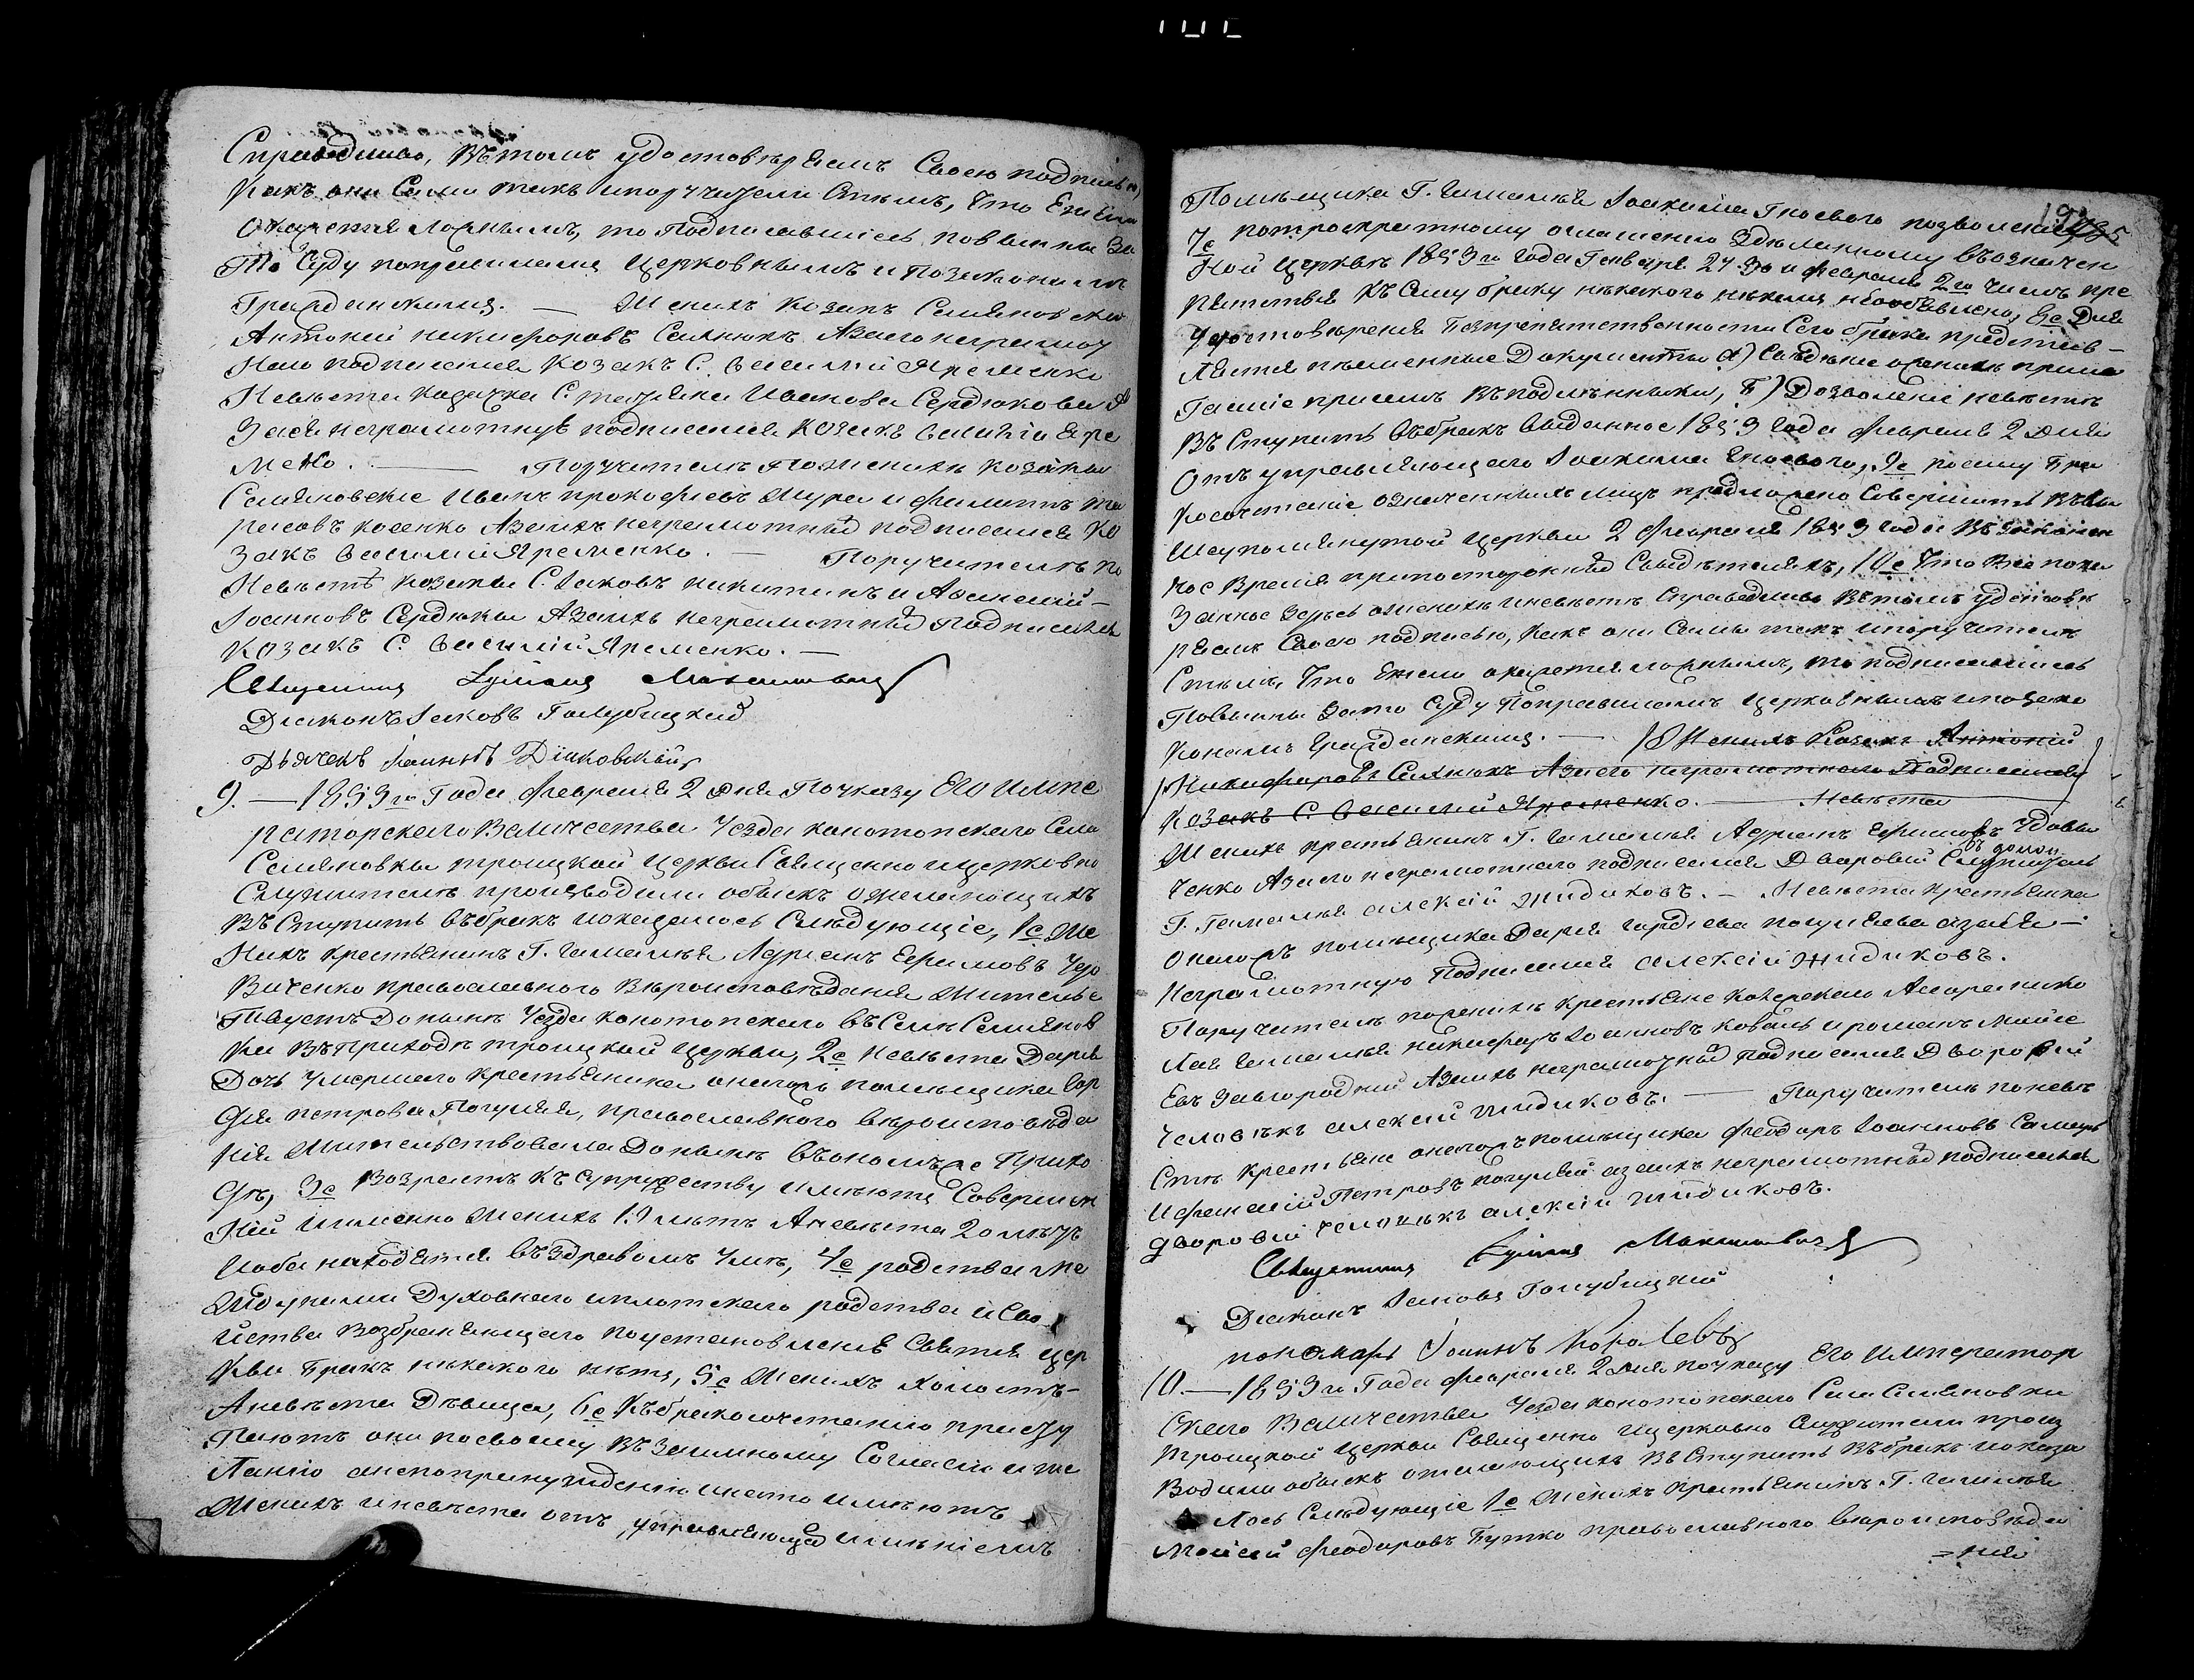 Справедливо, Въ томъ удостовѣряемъ Своею подписью
Какъ они Сами такъ и поручители Стѣмъ, Что Ежели
Окажется ложнымъ, то Подписавшіесь повинны За
То Суду поправиламъ Церковнымъ и Позаконамъ
Гражданскимъ. — Женихъ Козакъ Семяновскій
Антоній никифоровъ Сахнюкъ Азаего неграмот
Наго подписался Козакъ С. василій Яременко
Невѣста казачка С. татьяна Иванова Сердюкова А
Засея неграмотную подписался Козакъ василій Яре
менко. — Поручители По Женихѣ козаки
Семяновскіе Иванъ прокофіевъ Шура и филиппъ та
расовъ косенко Азаихъ неграмотныхъ подписался Ко
Закъ василій Яременко. — Поручители по
Невѣстѣ Козаки С. Іаковъ никитинъ и Аѳанасій
Іоанновъ Сердюки Азаихъ неграмотныхъ Подписался
Козакъ С. василій Яременко. —
Священникъ Максимовичъ
Діаконъ Іаковъ Голубицкій
Дьячекъ Іоаннъ Діаковскій
9. — 1853го Года февраля 2 Дня По указу Его Импе
раторскаго Величества Уезда конотопскаго Села
Семяновки троицкой Церкви Священно и Церковно
Служители производили обыскъ о желающихъ
Въ Ступить въ бракъ и оказалось Слѣдующіе, 1е Же
Нихъ крестьянинъ Г. гамалѣя Адріанъ Ефимовъ Удо
Виченко православнаго Вѣроисповѣданія Жительс
Твуетъ Донынѣ Уезда конотопскаго въ Селѣ Семянов
Ки Въ Приходѣ троицкой Церкви, 2е Невѣста Дарія
Дочь Умершаго крестьянина онагожъ помѣщика Гор
Дія петрова Погуляя, православнаго вѣроисповѣда
нія Жительствовала Донынѣ въ ономъ же Прихо
Дѣ, 3е Возрастъ Къ Супружеству Имѣютъ Соверше
Ній И именно Женихъ 19 лѣтъ А невѣста 20 лѣтъ
И оба находятся въ Здравомъ Умѣ, 4е родства ме
жду ними Духовнаго и плотскаго родства и Сво
йства Возбраняющаго по установленію Святыя Цер
Кви Бракъ никакого нѣтъ, 5е Женихъ холостъ —
А невѣста Дѣвица, 6е Къ бракосочетанію присту
Паютъ они по своему Взаимному Согласію и же
Ланію а не по принужденію и на то имѣютъ
Женихъ и невѣста отъ управляющаго имѣніемъ
Помѣщика Г. гамалѣя Іоакима Гноевого позволеніе
7е по троекратному оглашенію Здѣланному въ означен
Ной Церкви 1853го года Генваря 24. 30 и февраля 2го числъ пре
пятствія Къ Сему браку никакого никемъ необъявлено, 8е Для
Удостовѣренія безпрепятственности Сего брака представ —
ляется писменные Документы А) Свѣдѣніе о женихѣ прила
Гаемое присемъ Въ подлинникѣ, Б) Дозволеніе невѣстѣ
Въ Ступить въ бракъ выданное 1853 года февраля 2 дня
Отъ управляющаго Іоакима Гноевого, 9е по сему Бра
косочетаніе означенныхъ лицъ предложено Совершить Въ вы
Шеупомянутой Церкви 2 февраля 1853 года Въ Законен
ное Время при постороннихъ Свидѣтеляхъ, 10е Что Все пока
Занное Здѣсь о женихѣ и невѣстѣ Справедливо Въ томъ удостовѣ
ряемъ Своею подписью, Какъ они Сами такъ и поручители
Стѣмъ, Что Ежели окажется ложнымъ, то подписавшіесь
Повинны За то Суду Поправиламъ Церковнымъ и по За
конамъ Гражданскимъ. — Женихъ Козакъ Антоній
Никифоровъ Сахнюкъ Азаего неграмотнаго Подписался
Козакъ С. Василій Яременко. — Невѣста
Женихъ крестьянинъ Г. гамалѣя Адріанъ Ефимовъ Удови
въ домѣ
ченко Азаего неграмотнаго подписался Дворовій Служитель
Г. Гамалѣя алексій Жидиковъ. — Невѣста крестьянка
Онагожъ помѣщика Дарія гордіева погуляева азаея —
Неграмотную Подписался алексій Жидиковъ.
Поручители по женихѣ крестьяне
лая гамалѣя никифоръ Іоанновъ коваль и романъ
Евъ Завгородній Азаихъ неграмотныхъ Подписался Дворовій
человѣкъ алексій Жидиковъ. — Поручители по невѣ
Стѣ крестьяне онагожъ помѣщика феодоръ Іоанновъ
и Петровъ погуляй азаихъ неграмотныхъ подписался
дворовій человѣкъ алексій Жидиковъ.
Священникъ Максимовичъ
Діаконъ Іаковъ Голубицкій
пономарь Іоаннъ
10. — 1853го Года февраля 2 дня по указу Его Император
Скаго Величества Уезда конотопскаго Села Семяновки
троицкой Церкви Священно и Церковно Служители произ
Водили обыскъ о желающихъ Въ Ступить Въ бракъ и оказа
лось Слѣдующіе 1е Женихъ крестьянинъ Г. гамалѣя
Моисей феодоровъ Бутко православнаго вѣроисповѣда
= нія